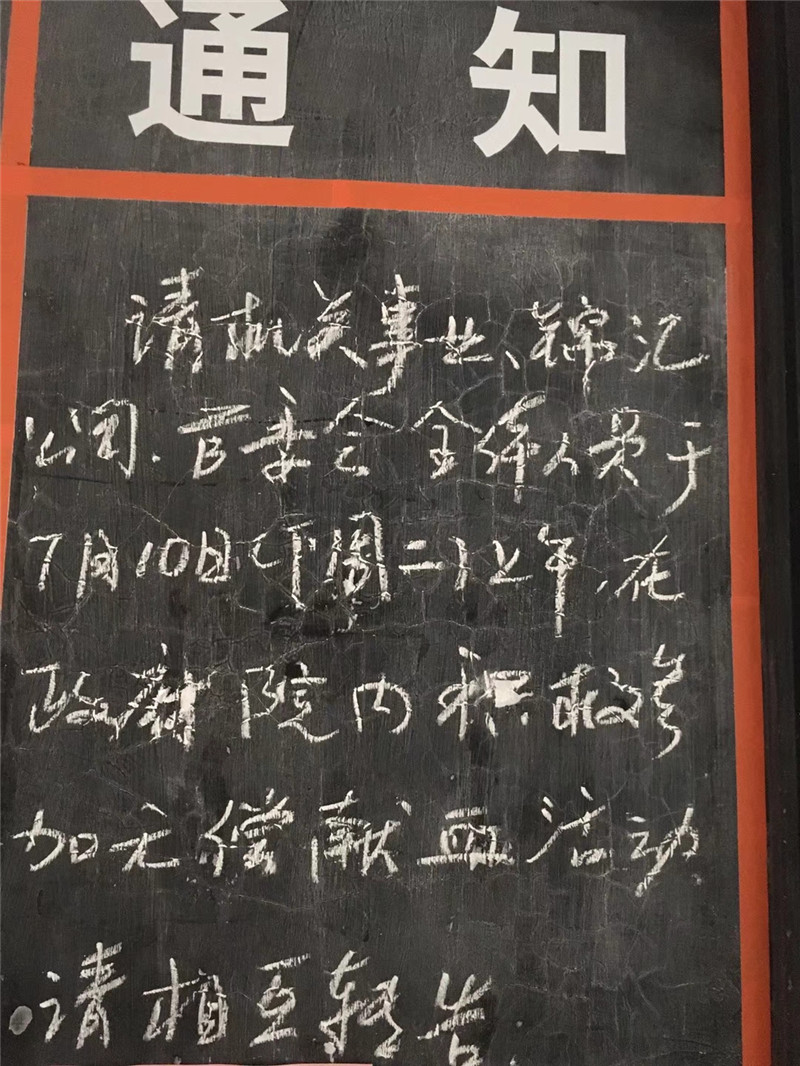 通知
请机关事业、锦汇
公司、管委会全体人员于
7月10日(下周二)上午,在
政府院内积极参
加无偿献血活动
请相互转告.